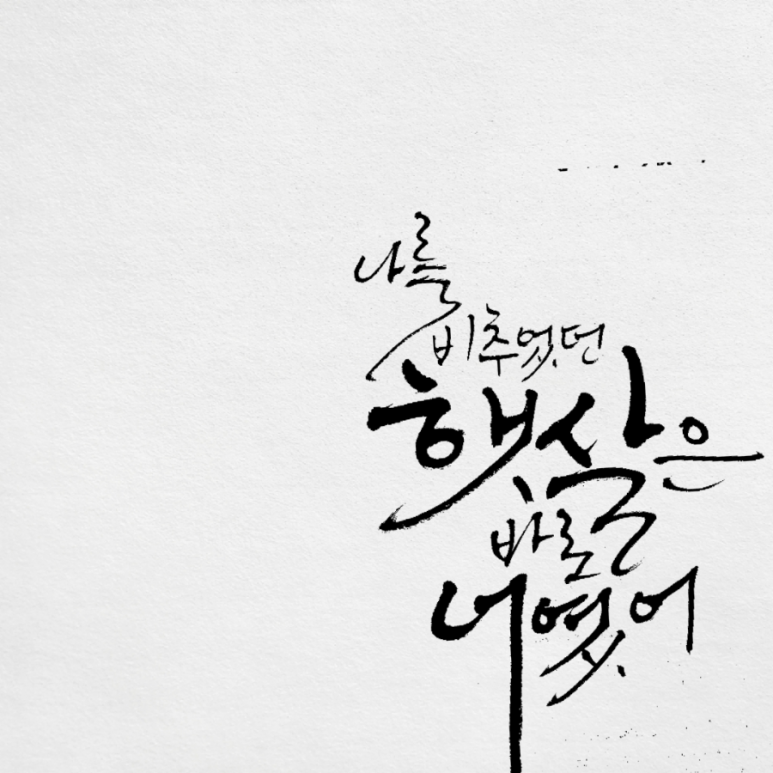 나를
비추었던
햇살은
바로
너였어